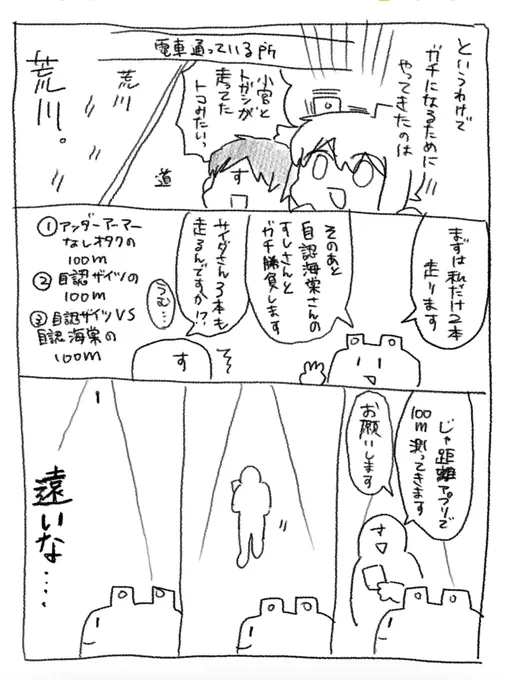 というわけで
ガチになるために
やってきたのは
電車通っている所
小宮と
トガシが
走ってた
トコみたいっ
す
道
荒川
荒川。
まずは私だけ2本
走ります
そのあと
自認海棠さんの
すしさんと
ガチ勝負します
サイダさん3本も
走るんですか!?
うむ…
す
①アンダーアーマー
なしオタクの
100m
②自認ザイツの
100m
③自認ザイツVS
自認海棠の
100m
じゃ距離アプリで
100m測ってきます
お願いします
す
遠いな…